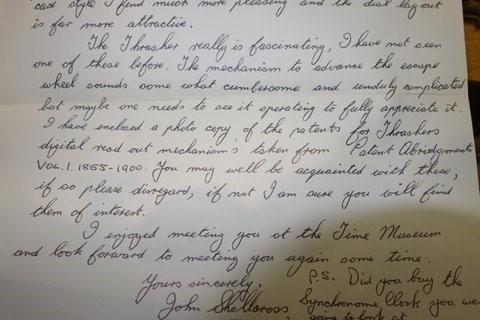 case style I find much more pleasing and the dial layout
is far more attractive.
The Thrasher really is fascinating, I have not seen
one of these before. The mechanism to advance the escape
wheel sounds some what cumbersome and unduly complicated
but maybe one needs to see it operating to fully appreciate it.
I have enclosed a photo copy of the patents for Thrashers
digital read out mechanisms taken from Patent Abridgments
VOL. 1. 1855-1900. You may well be acquainted with these,
if so please disregard, if not I am sure you will find
them of interest.
I enjoyed meeting you at the Time Museum
and look forward to meeting you again some time.
Yours sincerely,
John Shellcross
P.S. Did you buy the
Synchronome Clock you were
going to look at